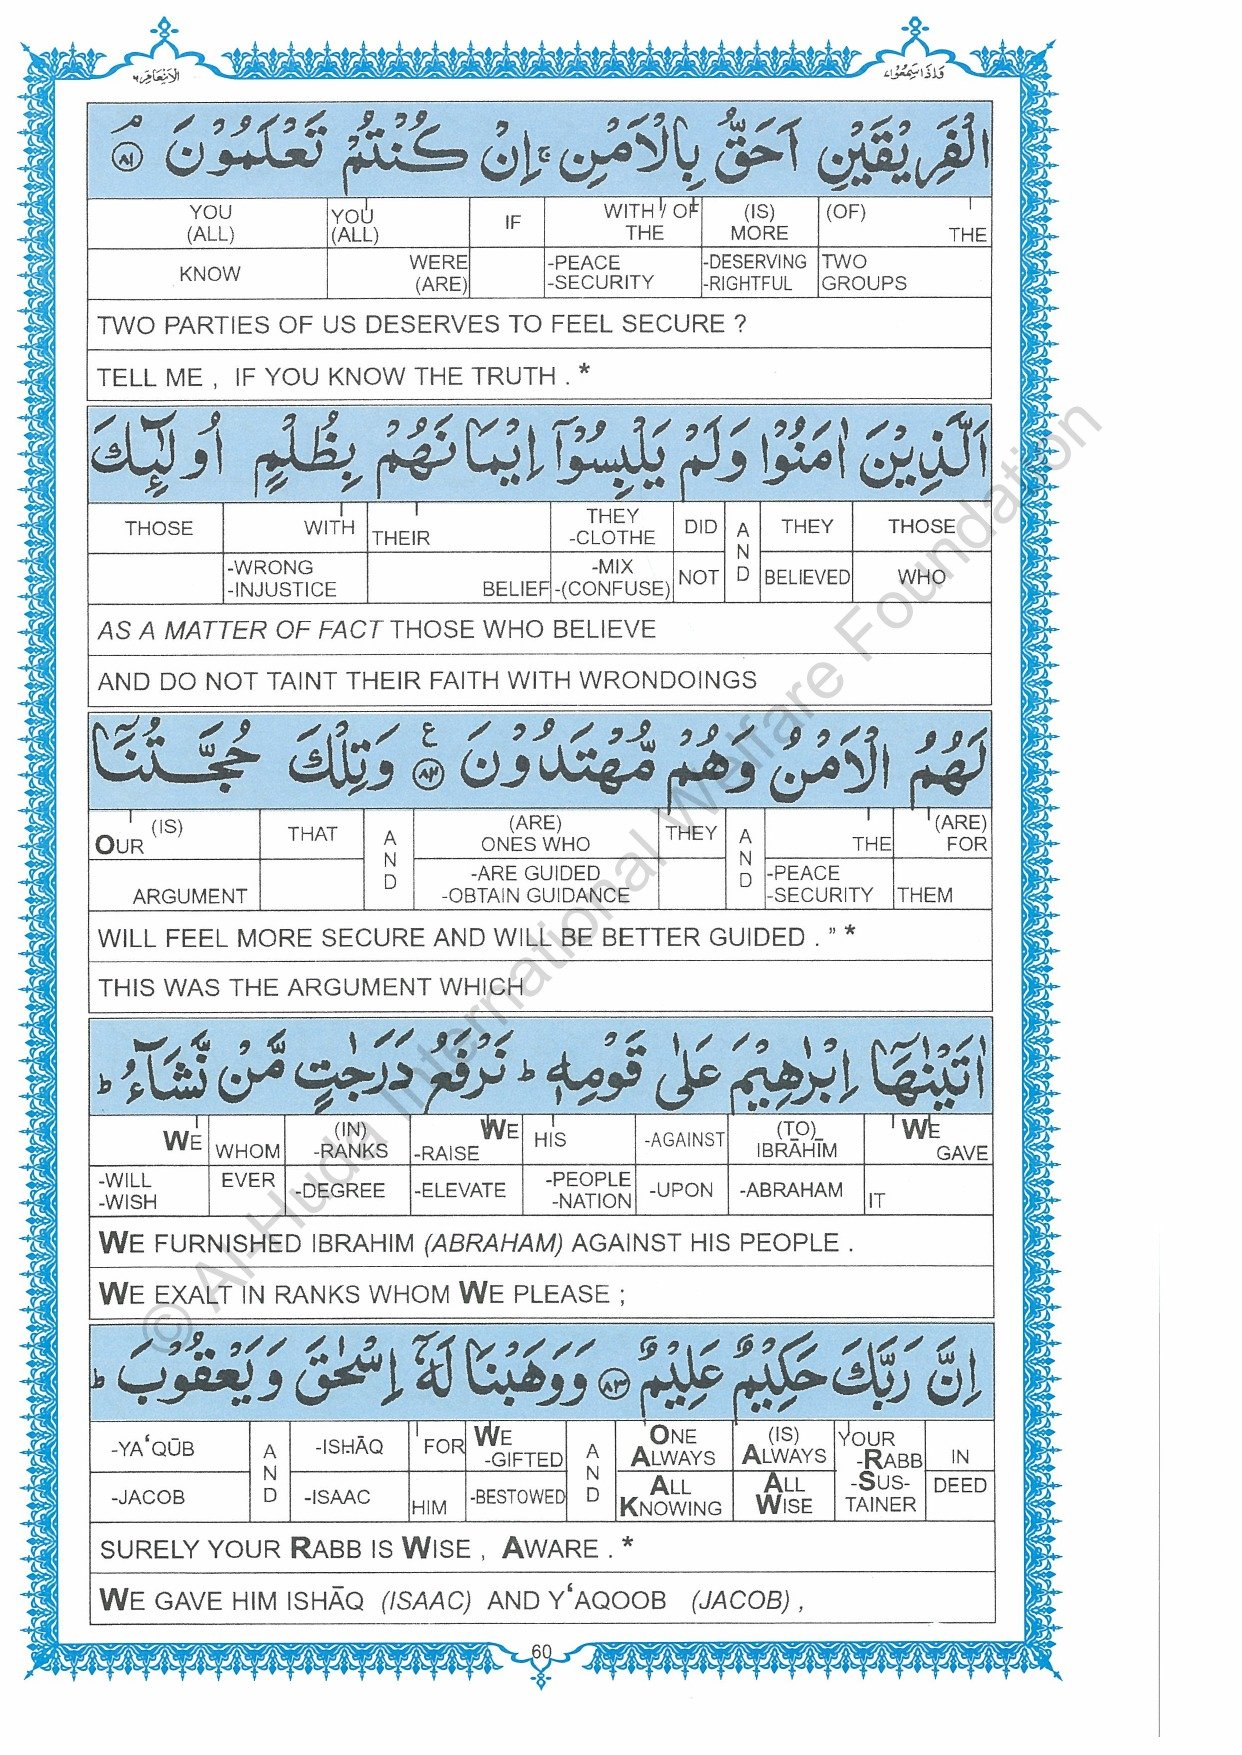 الانعام ٦
واذا سمعوا ٧
الْفَرِيْقَيْنِ اَحَقُّ بِالْاَمْنِ ۚ اِنْ كُنْتُمْ تَعْلَمُوْنَ ۘ ﴿٨١﴾
YOU YOU IF WITH / OF (IS) (OF)
(ALL) (ALL) THE MORE THE
KNOW WERE -PEACE -DESERVING TWO
(ARE) -SECURITY -RIGHTFUL GROUPS
TWO PARTIES OF US DESERVES TO FEEL SECURE ?
TELL ME , IF YOU KNOW THE TRUTH . *
اَلَّذِيْنَ اٰمَنُوْا وَلَمْ يَلْبِسُوْٓا اِيْمَانَهُمْ بِظُلْمٍ اُولٰٓئِكَ
THOSE WITH THEIR THEY DID AND THEY THOSE
-CLOTHE
-WRONG BELIEF -MIX NOT BELIEVED WHO
-INJUSTICE -(CONFUSE)
AS A MATTER OF FACT THOSE WHO BELIEVE
AND DO NOT TAINT THEIR FAITH WITH WRONDOINGS
لَهُمُ الْاَمْنُ وَهُمْ مُّهْتَدُوْنَ ﴿٨٢﴾ ع وَتِلْكَ حُجَّتُنَآ
OUR (IS) THAT AND (ARE) THEY AND THE (ARE)
ONES WHO FOR
ARGUMENT -ARE GUIDED -PEACE THEM
-OBTAIN GUIDANCE -SECURITY
WILL FEEL MORE SECURE AND WILL BE BETTER GUIDED . ” *
THIS WAS THE ARGUMENT WHICH
اٰتَيْنٰهَآ اِبْرٰهِيْمَ عَلٰى قَوْمِهٖ ؕ نَرْفَعُ دَرَجٰتٍ مَّنْ نَّشَآءُ ؕ
WE WHOM (IN) WE HIS -AGAINST (TO) WE
-RANKS -RAISE IBRĀHĪM GAVE
-WILL EVER -DEGREE -ELEVATE -PEOPLE -UPON -ABRAHAM IT
-WISH -NATION
WE FURNISHED IBRAHIM (ABRAHAM) AGAINST HIS PEOPLE .
WE EXALT IN RANKS WHOM WE PLEASE ;
اِنَّ رَبَّكَ حَكِيْمٌ عَلِيْمٌ ﴿٨٣﴾ وَوَهَبْنَا لَهٗٓ اِسْحٰقَ وَيَعْقُوْبَ ؕ
-YA‘QŪB AND -ISHĀQ FOR WE AND ONE (IS) YOUR IN
-GIFTED ALWAYS ALWAYS -RABB
-JACOB -ISAAC HIM -BESTOWED ALL ALL -SUS- DEED
KNOWING WISE TAINER
SURELY YOUR RABB IS WISE , AWARE . *
WE GAVE HIM ISHĀQ (ISAAC) AND Y‘AQOOB (JACOB) ,
60
© Al-Huda International Welfare Foundation